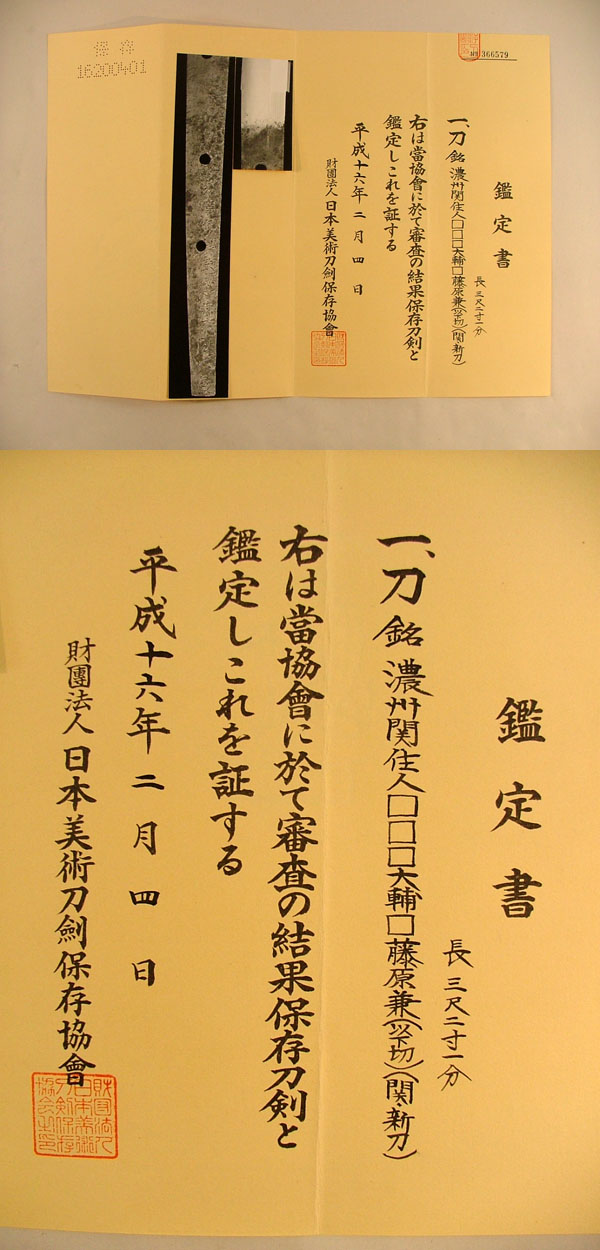 保存
16200401
№ 366579
鑑定書
長 三尺二寸一分
一、刀 銘 濃州関住人□□□大輔□藤原兼(以下切)(関・新刀)
右は當協會に於て審査の結果保存刀剣と
鑑定しこれを証する
平成十六年二月四日
財團法人 日本美術刀劍保存協會
鑑定書
長 三尺二寸一分
一、刀 銘 濃州関住人□□□大輔□藤原兼(以下切)(関・新刀)
右は當協會に於て審査の結果保存刀剣と
鑑定しこれを証する
平成十六年二月四日
財團法人 日本美術刀劍保存協會